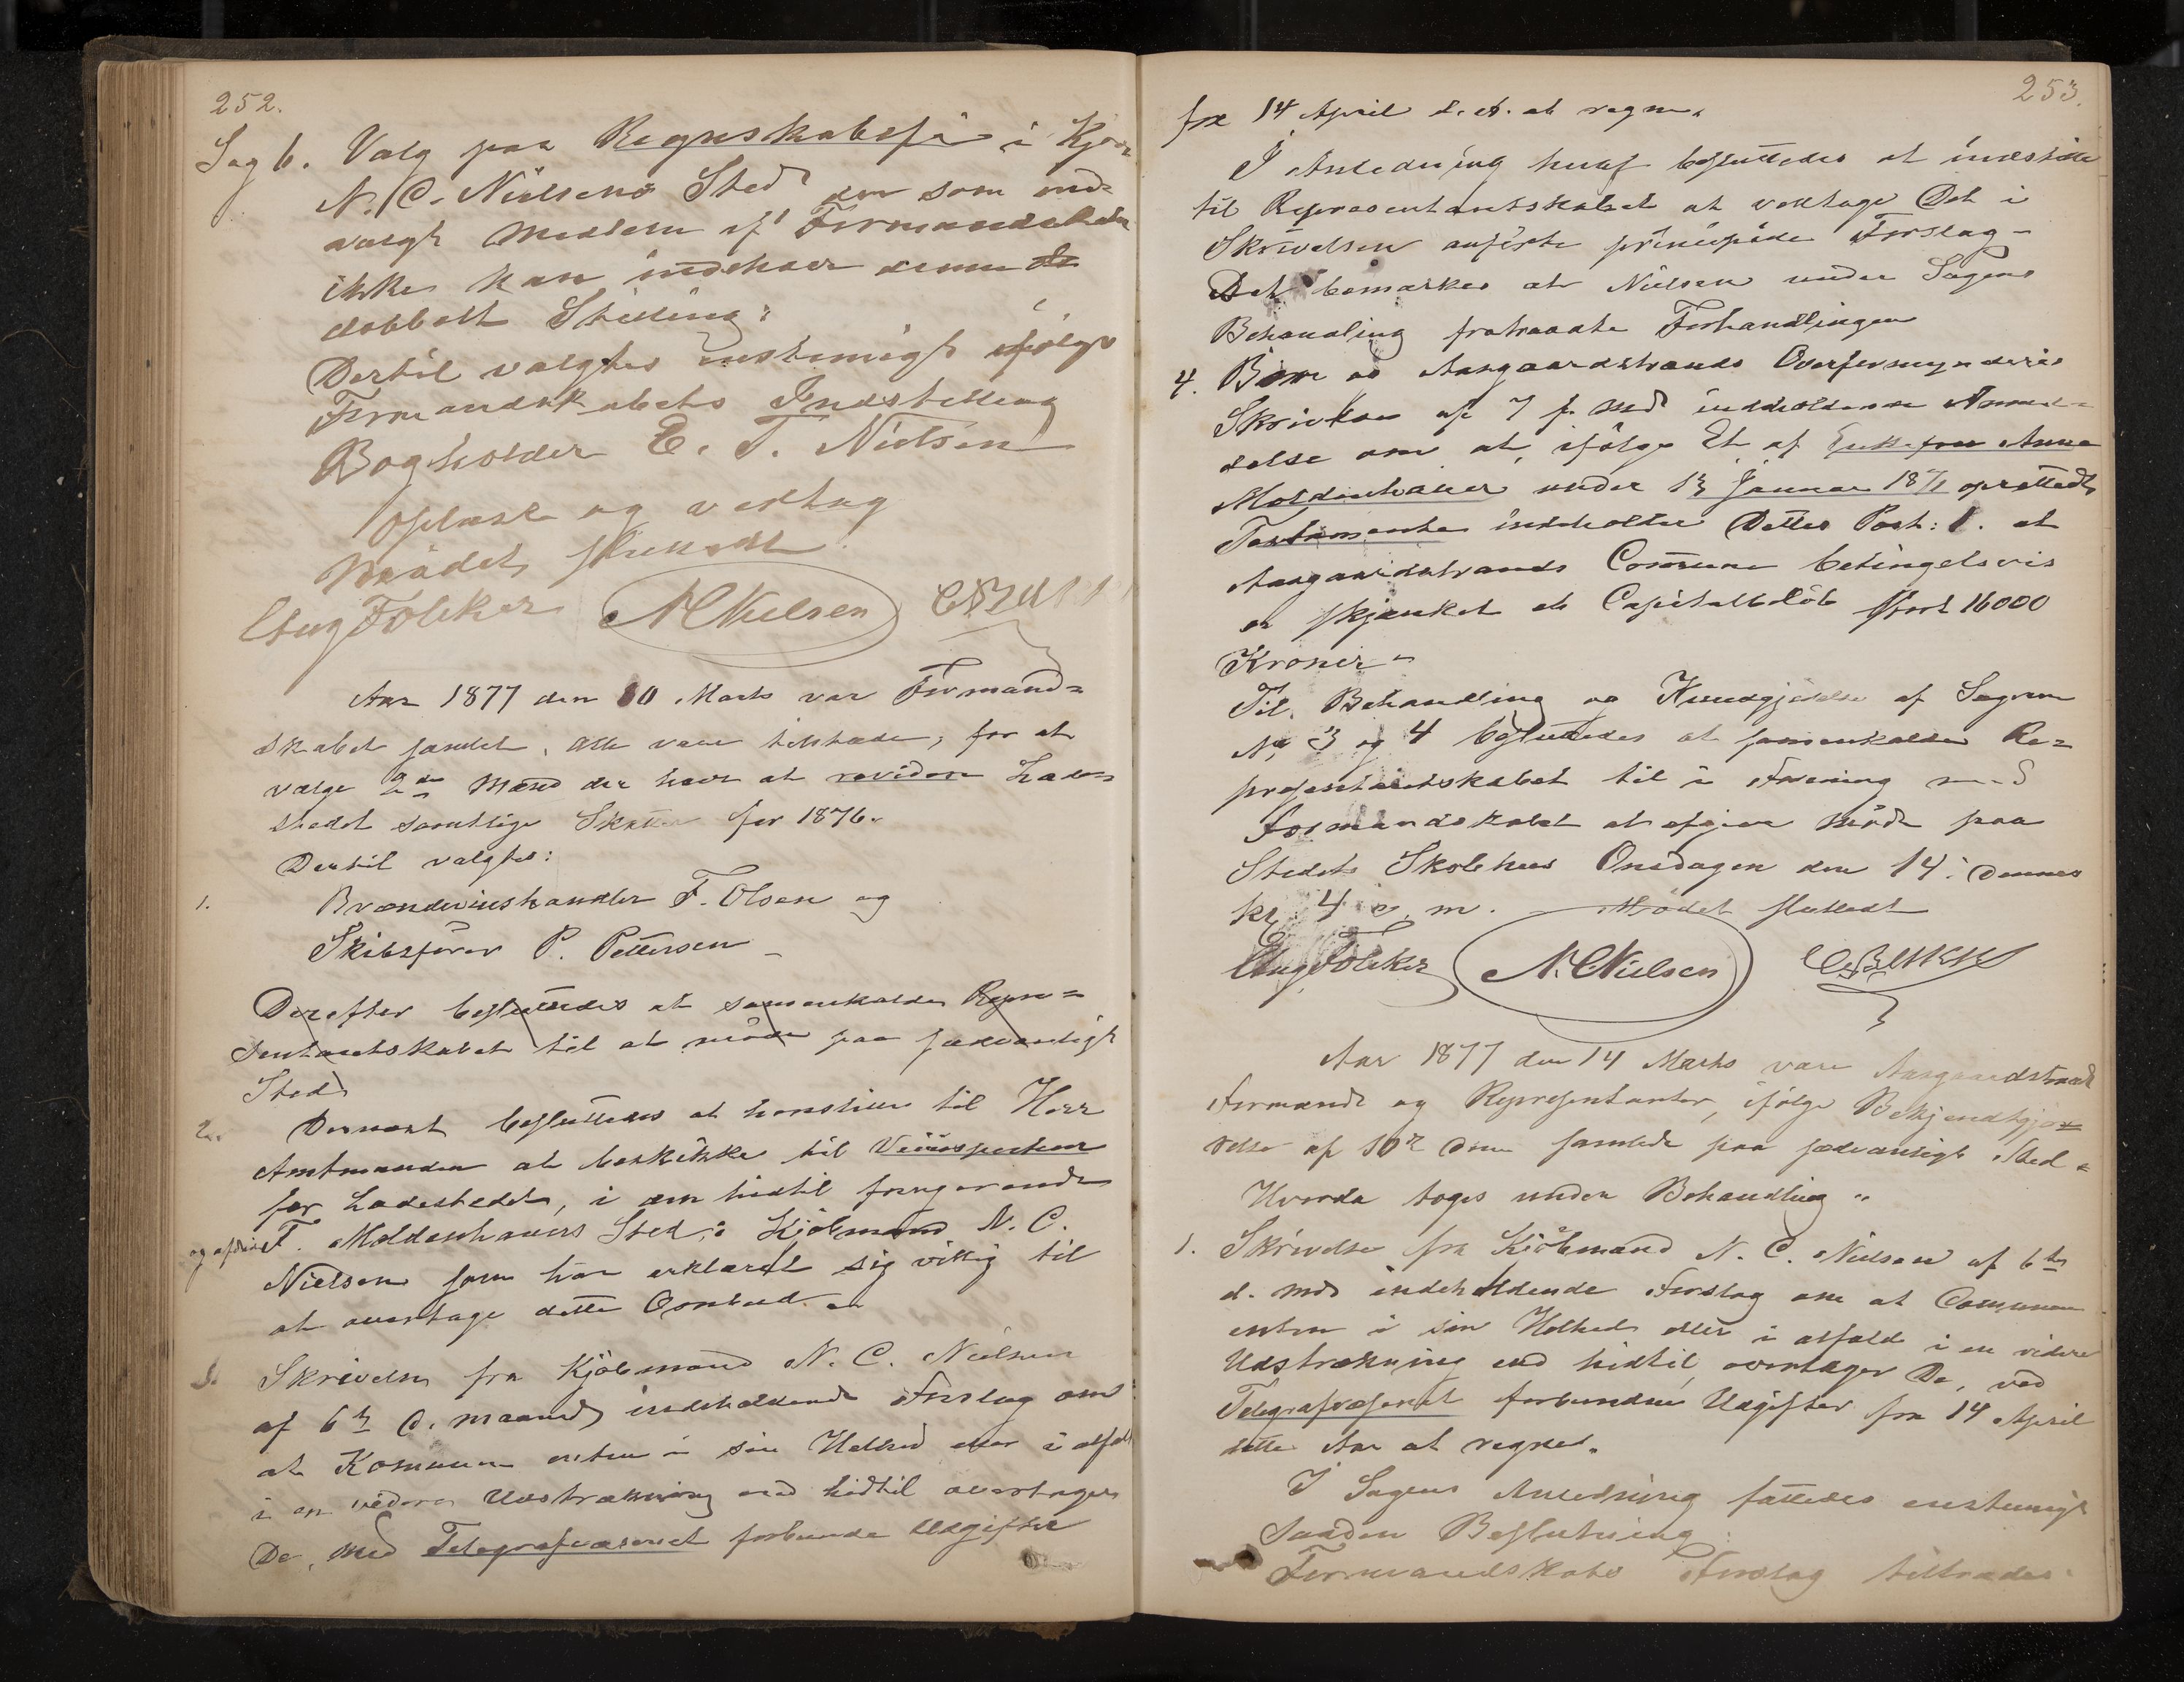 252.
Sag 6. Valg paa Regnskabsfører i Kjøbm
N. C. Nielsens Sted der som ind=
valgt Medlem af Formandskabet
ikke kan indehave denne
dobbelt Stilling:
Dertil valgtes enstemigt ifølge
Formandskabets Indstilling
Bogholder E. T. Nielsen
Oplæst og vedtag
Mødet sluttedt.
Aug Fölcker N C Nielsen
Aar 1877 den 10 Marts var Formand=
skabet samlet, alle vare tilstæde, for at
vælge 2de Mænd der have at revidere Lade=
stedet samtlige Skatter for 1876.
Dertil valgtes:
1. Brændevinshandler F. Olsen og
Skibsfører P. Pettersen
Derefter besluttedes at samenkalde Repre=
sentantskabet til at møde paa sædvanligt
Sted
2. Dernæst besluttedes at henstille til Herr
Amtmanden at beskikke til Veiinspecteur
for Ladestedet, i den hidtil fungerende
og afdøde F. Moldenhauers Sted: Kjöbmand N. C.
Nielsen som har erklæret sig villig til
at overtage dette Ombud.
3. Skrivelse fra Kjöbmand N. C. Nielsen
af 6te d. maaned indeholdende Forslag om
at Komunen enten i sin Helhed eller i alfald
i en videre Udstrækning end hidtil overtager
De, med Telegrafvæsenet forbundne Udgifter
253.
fra 14 April d. A. at regne.
I Anledning heraf besluttedes at indstille
til Representantskabet at vedtage Det i
Skrivelsen anførte principale Forslag-
Det bemærkes at Nielsen under Sagens
Behandling fratraadte Forhandlingen
4. Borre og Aasgaardstrands Overformynderies
Skrivelse af 7 d. Md indeholdende Anmel=
delse om at, ifølge Et af Enkefru Anna
Moldenhauer under 13 Januar 1871 oprettedt
Testamente indeholder Dettes Post: 1. at
Aasgaardstrands Comune betingelsvis
er skjænket et Capitalbelöb stort 16000
Kroner
Til Behandling og Kundgjørelse af Sagerne
No 3 og 4 besluttedes at sammenkalde Re=
presentantskabet til i Forening med
Formandskabet at afgive Møde paa
Stedets Skolehus Onsdagen den 14. Dennes
kl 4 e. m. - Mødet sluttedt
Aug Fölcker N. C Nielsen
Aar 1877 den 14 Marts vare Aasgaardstrands
Formænd og Representanter, ifølge Bekjendtgjø=
relse af 10de dms samlede paa sædvanligt Sted
Hvorda toges under Behandling
1. Skrivelse fra Kjöbmand N. C. Nielsen af 6te
d. Md indeholdende Forslag om at Comunen
enten i sin Helhed eller i alfald i en videre
Udstrækning end hidtil, overtager De, ved
Telegrafvæsenet forbundne Udgifter fra 14 April
dette Aar at regne.
I Sagens Anledning fattedes enstemigt
saaden Beslutning:
Formandskabs Forslag tiltrædes.